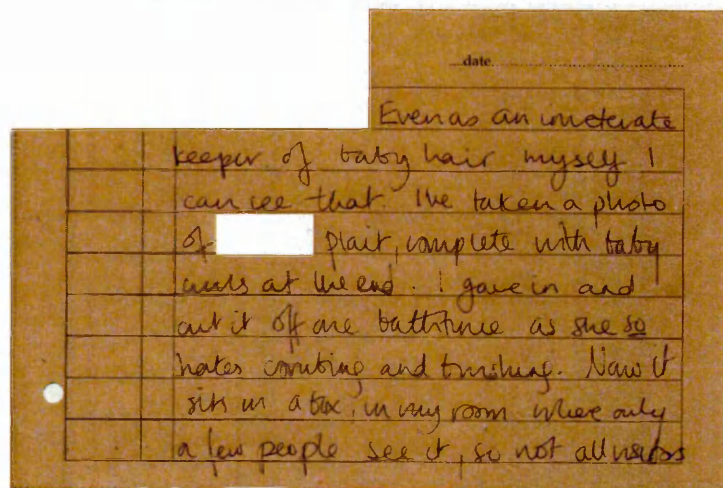 date
Even as an inveterate
keeper of baby hair myself I
can see that. I've taken a photo
of plait, complete with baby
curls at the end. I gave in and
cut it off one bathtime as she so
hates combing and brushing. Now it
sits in a box, in my room where only
a few people see it, so not all visitors